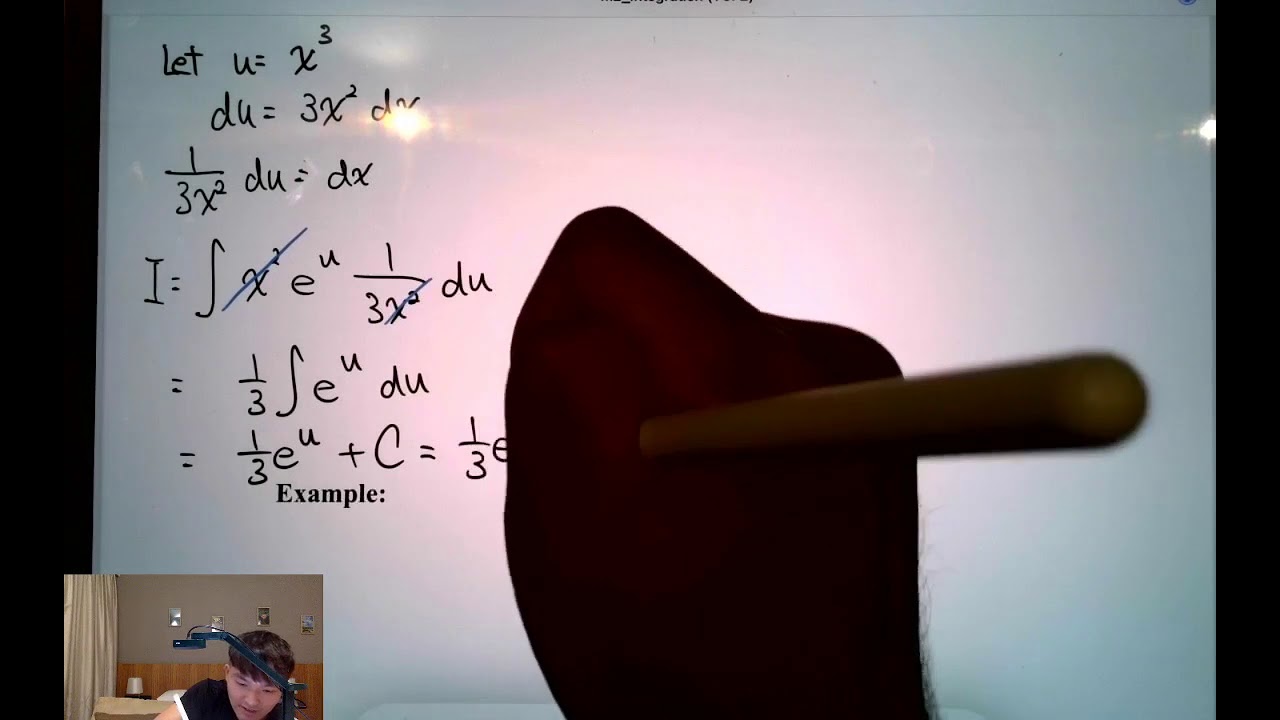 Let u = x³
du = 3x² dx
1/3x² du = dx
I = ∫ x² e^u 1/3x² du
= 1/3 ∫ e^u du
= 1/3 e^u + C = 1/3 e
Example: